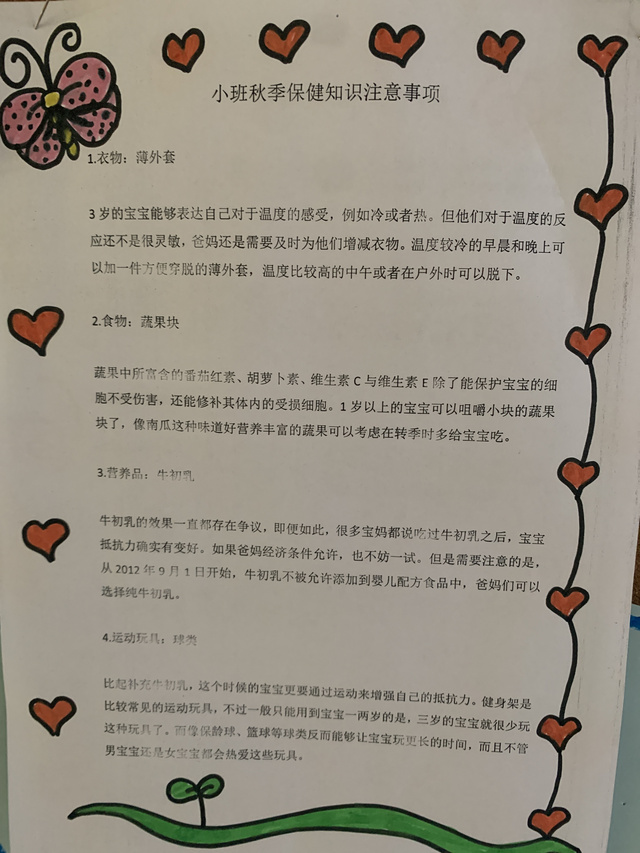 小班秋季保健知识注意事项
1.衣物：薄外套
3 岁的宝宝能够表达自己对于温度的感受，例如冷或者热。但他们对于温度的反
应还不是很灵敏，爸妈还是需要及时为他们增减衣物。温度较冷的早晨和晚上可
以加一件方便穿脱的薄外套，温度比较高的中午或者在户外时可以脱下。
2.食物：蔬果块
蔬果中所富含的番茄红素、胡萝卜素、维生素 C 与维生素 E 除了能保护宝宝的细
胞不受伤害，还能修补其体内的受损细胞。1 岁以上的宝宝可以咀嚼小块的蔬果
块了，像南瓜这种味道好营养丰富的蔬果可以考虑在转季时多给宝宝吃。
3.营养品：牛初乳
牛初乳的效果一直都存在争议，即便如此，很多宝妈都说吃过牛初乳之后，宝宝
抵抗力确实有变好。如果爸妈经济条件允许，也不妨一试。但是需要注意的是，
从 2012 年 9 月 1 日开始，牛初乳不被允许添加到婴儿配方食品中，爸妈们可以
选择纯牛初乳。
4.运动玩具：球类
比起补充牛初乳，这个时候的宝宝更要通过运动来增强自己的抵抗力。健身架是
比较常见的运动玩具，不过一般只能用到宝宝一两岁的是，三岁的宝宝就很少玩
这种玩具了。而像保龄球、篮球等球类反而能够让宝宝玩更长的时间，而且不管
男宝宝还是女宝宝都会热爱这些玩具。